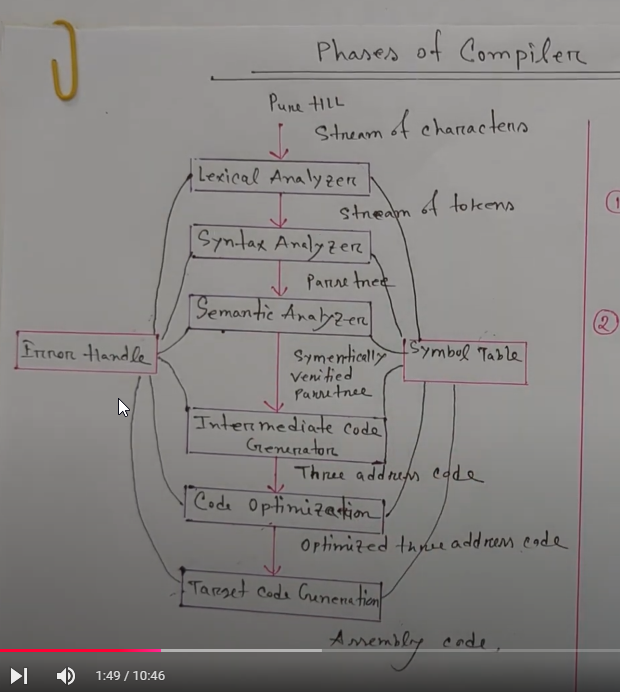 Phases of Compiler
Pure HLL
Stream of characters
Lexical Analyzer
Stream of tokens
Syntax Analyzer
Parse tree
Semantic Analyzer
Error Handle
Symbol Table
Symentically
verified
parse tree
Intermediate code
Generator
Three address code
Code Optimization
Optimized three address code
Target code Generation
Assembly code,
1
2
1:49 / 10:46